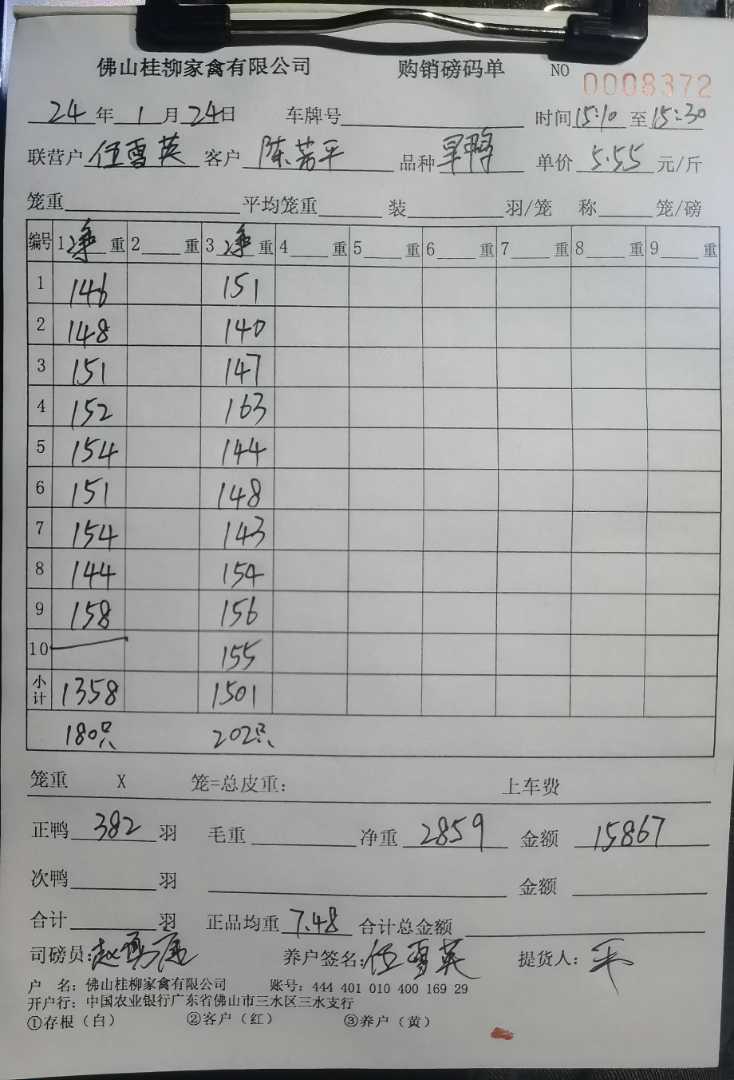 佛山桂柳家禽有限公司 购销磅码单 NO 0008372
24年1月24日 车牌号 时间15:10至15:30
联营户 伍雪英 客户 陈芳平 品种 旱鸭 单价 5.55 元/斤
笼重 平均笼重 装 羽/笼 称 笼/磅
编号 1净重 2重 3净重 4重 5重 6重 7重 8重 9重
1 146 151
2 148 140
3 151 147
4 152 163
5 154 144
6 151 148
7 154 143
8 144 154
9 158 156
10 — 155
小计 1358 1501
180只 202只
笼重 X 笼=总皮重: 上车费
正鸭 382 羽 毛重 净重 2859 金额 15867
次鸭 羽 金额
合计 羽 正品均重 7.48 合计总金额
司磅员: 赵 养户签名: 伍雪英 提货人: 平
户 名: 佛山桂柳家禽有限公司 账号: 444 401 010 400 169 29
开户行: 中国农业银行广东省佛山市三水区三水支行
①存根(白) ②客户(红) ③养户(黄)